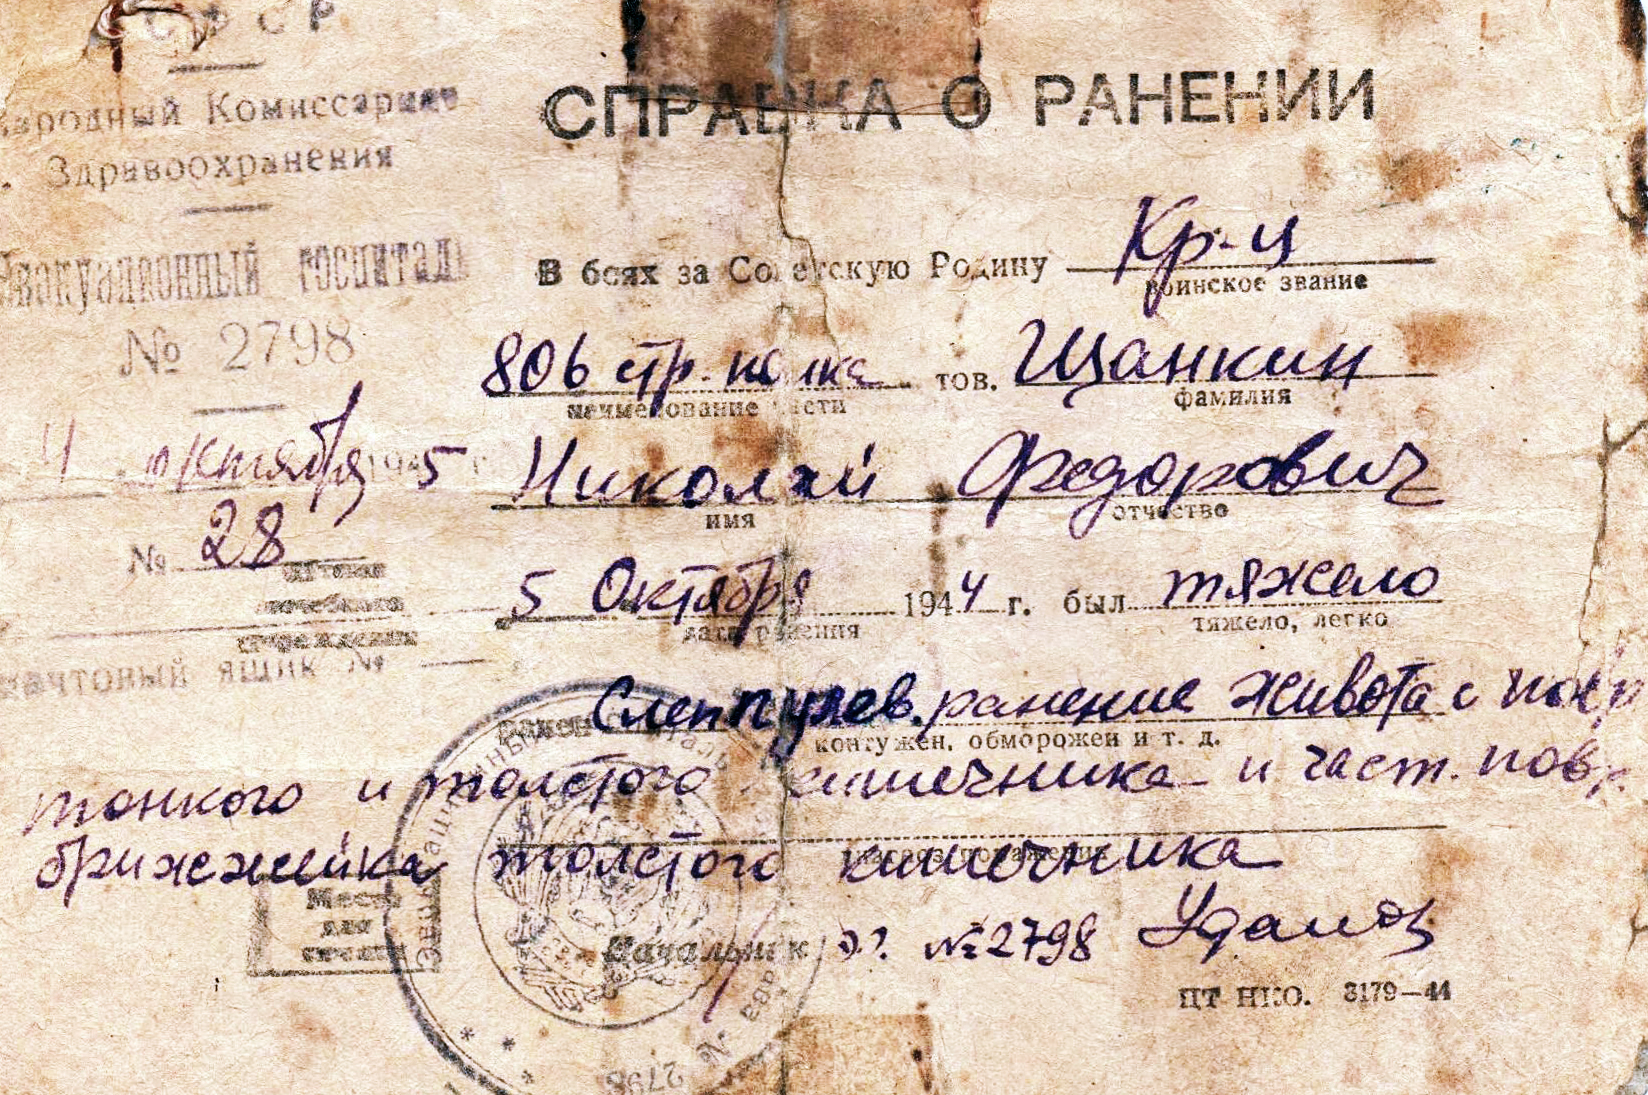 СФСР
Народный Комиссариат
Здравоохранения
Эвакуационный госпиталь
№ 2798
4 октября 1945 г.
№ 28
Штамп
лечебного
учреждения
почтовый ящик №
СПРАВКА О РАНЕНИИ
В боях за Советскую Родину Кр-ц
воинское звание
806 стр. полка тов. Щанкин
наименование части фамилия
Николай Федорович
имя отчество
5 Октября 1944 г. был тяжело
дата ранения тяжело, легко
ранен Слеп пулев. ранение живота с
контужен, обморожен и т. д.
тонкого и толстого кишечника и част. повр.
брижжейка толстого кишечника
Место
для
печати
Начальник э.г. № 2798
ПТ НКО. 3179—44
№ 2798